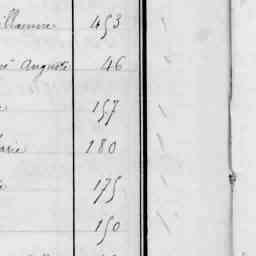 illaume 453
né Auguste 46
e 157
arie 180
e 175
150